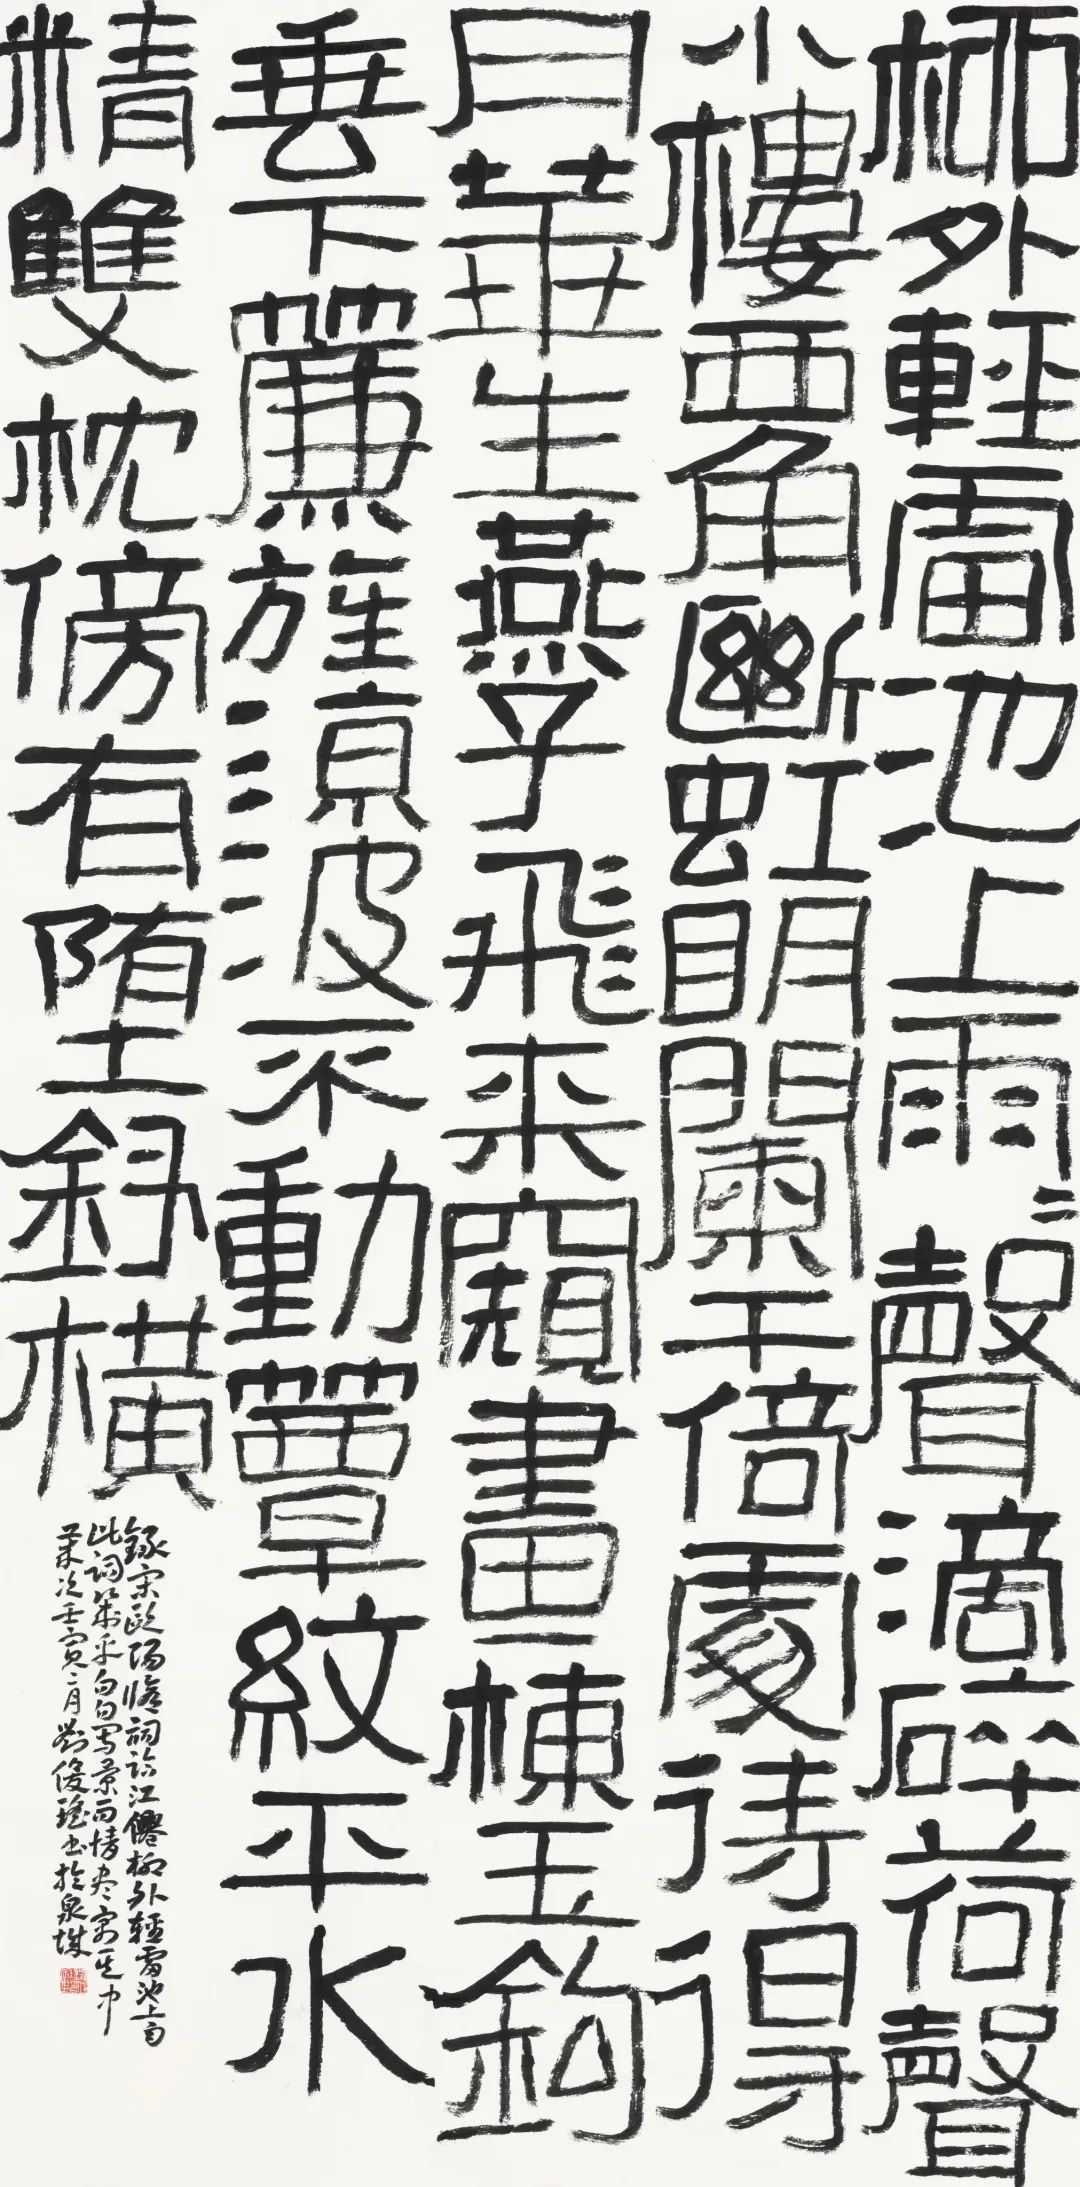 柳外輕雷池上雨〻聲滴碎荷聲
小樓西角斷虹明闌干倚處待得
月華生燕子飛來窺畫棟玉鉤
垂下簾旌涼波不動簟紋平水
精雙枕傍有墮釵橫
錄宋歐陽脩詞臨江僊柳外輕雷池上雨
此詞幾乎句句寫景而情盡寓其中
歲次壬寅二月劉俊瑤書於泉城